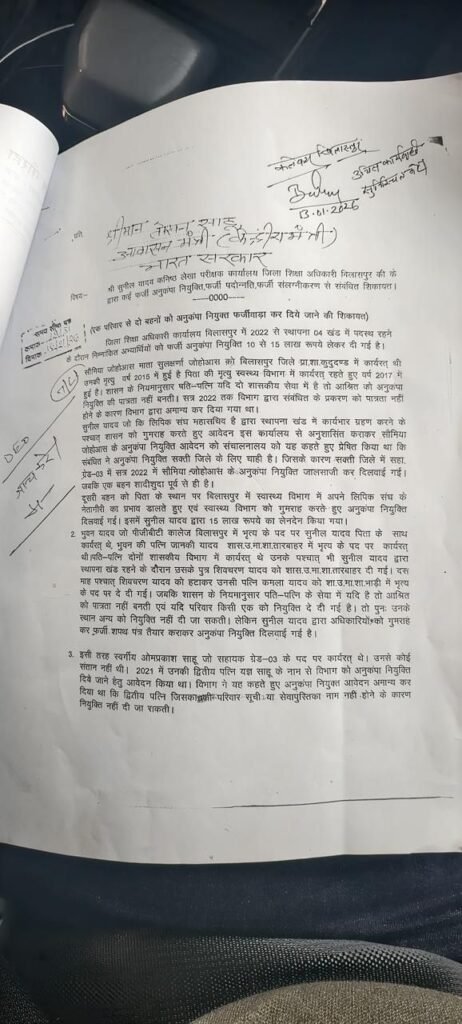 कलेक्टर बिलासपुर
उचित कार्यवाही
सुनिश्चित करें
13.01.2026
प्रति,
श्रीमान तोखन साहू
आवासन मंत्री (केन्द्रीय मंत्री)
भारत सरकार
विषय:- श्री सुनील यादव कनिष्ठ लेखा परीक्षक कार्यालय जिला शिक्षा अधिकारी बिलासपुर की के
द्वारा कई फर्जी अनुकंपा नियुक्ति,फर्जी पदोन्नति,फर्जी संलग्नीकरण से संबंधित शिकायत।
----0000----
(एक परिवार से दो बहनों को अनुकंपा नियुक्त फर्जीवाड़ा कर दिये जाने की शिकायत)
जिला शिक्षा अधिकारी कार्यालय बिलासपुर में 2022 से स्थापना 04 खंड में पदस्थ रहने
के दौरान निम्नांकित अभ्यार्थियों को फर्जी अनुकंपा नियुक्ति 10 से 15 लाख रूपये लेकर दी गई है।
सौमिया जोहोआस माता सुलक्षणा जोहोआस को बिलासपुर जिले प्रा.शा.कुदुदण्ड में कार्यरत थी
उनकी मृत्यु वर्ष 2015 में हुई है पिता की मृत्यु स्वास्थ्य विभाग में कार्यरत् रहते हुए वर्ष 2017 में
हुई है। शासन के नियमानुसार पति-पत्नि यदि दो शासकीय सेवा में है तो आश्रित को अनुकंपा
नियुक्ति की पात्रता नहीं बनती। सत्र 2022 तक विभाग द्वारा संबंधित के प्रकरण को पात्रता नहीं
होने के कारण विभाग द्वारा अमान्य कर दिया गया था।
सुनील यादव जो कि लिपिक संघ महासचिव है द्वारा स्थापना खंड में कार्यभार ग्रहण करने के
पश्चात् शासन को गुमराह करते हुए आवेदन इस कार्यालय से अनुशासित कराकर सौमिया
जोहोआस के अनुकंपा नियुक्ति आवेदन को संचालनालय को यह कहते हुए प्रेषित किया था कि
संबंधित ने अनुकंपा नियुक्ति सक्ती जिले के लिए चाही है। जिसके कारण सक्ती जिले में सहा.
ग्रेड-03 में सत्र 2022 में सौमिया जोहोआस के अनुकंपा नियुक्ति जालसाजी कर दिलवाई गई।
जबकि एक बहन शादीशुदा पूर्व से ही है।
दूसरी बहन को पिता के स्थान पर बिलासपुर में स्वास्थ्य विभाग में अपने लिपिक संघ के
नेतागीरी का प्रभाव डालते हुए एवं स्वास्थ्य विभाग को गुमराह करते हुए अनुकंपा नियुक्ति
दिलवाई गई। इसमें सुनील यादव द्वारा 15 लाख रूपये का लेनदेन किया गया।
2. भुवन यादव जो पीजीबीटी कालेज बिलासपुर में भृत्य के पद पर सुनील यादव पिता के साथ
कार्यरत् थे, भुवन की पत्नि जानकी यादव शास.उ.मा.शा.तारबाहर में भृत्य के पद पर कार्यरत्
थी।पति-पत्नि दोनों शासकीय विभाग में कार्यरत् थे उनके पश्चात् भी सुनील यादव द्वारा
स्थापना खंड रहने के दौरान उसके पुत्र शिवचरण यादव को शास.उ.मा.शा.तारबाहर दी गई। दस
माह पश्चात् शिवचरण यादव को हटाकर उनकी पत्नि कमला यादव को शा.उ.मा.शा.भाड़ी में भृत्य
के पद पर दे दी गई। जबकि शासन के नियमानुसार पति-पत्नि के सेवा में यदि है तो आश्रित
को पात्रता नहीं बनती एवं यदि परिवार किसी एक को नियुक्ति दे दी गई है। तो पुनः उनके
स्थान अन्य को नियुक्ति नहीं दी जा सकती। लेकिन सुनील यादव द्वारा अधिकारियों को गुमराह
कर फर्जी शपथ पत्र तैयार कराकर अनुकंपा नियुक्ति दिलवाई गई है।
3. इसी तरह स्वर्गीय ओमप्रकाश साहू जो सहायक ग्रेड-03 के पद पर कार्यरत् थे। उनसे कोई
संतान नहीं थी। 2021 में उनकी द्वितीय पत्नि यज्ञ साहू के नाम से विभाग को अनुकंपा नियुक्ति
दिये जाने हेतु आवेदन किया था। विभाग ने यह कहते हुए अनुकंपा नियुक्त आवेदन अमान्य कर
दिया था कि द्वितीय पत्नि जिसका परिवार सूची या सेवापुस्तिका नाम नहीं होने के कारण
नियुक्ति नहीं दी जा सकती।
DEO